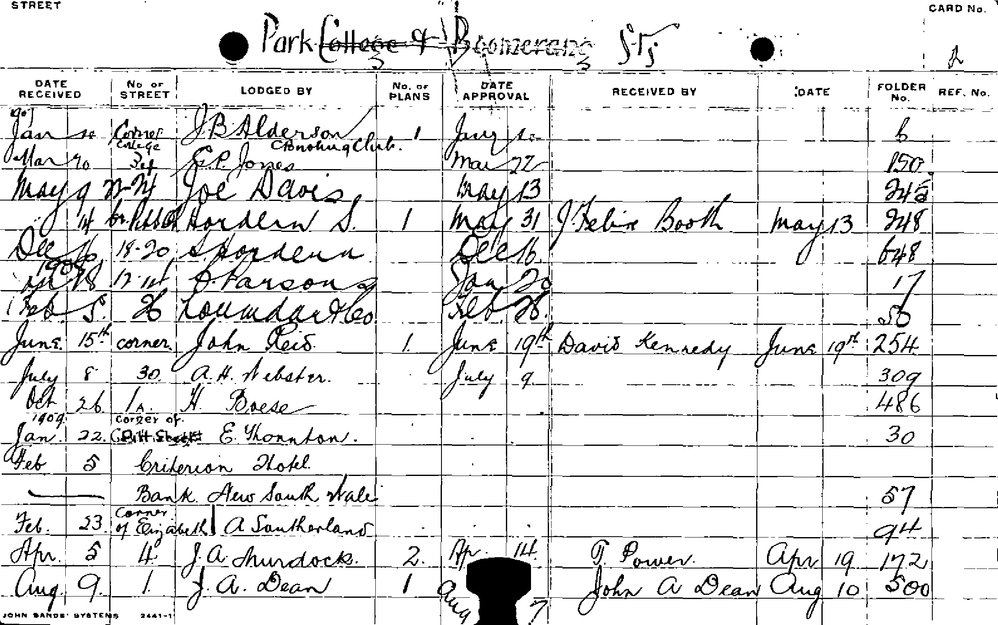 STREET
CARD No.
Park College & Boomerang Sts
2
DATE RECEIVED No OF STREET LODGED BY No. OF PLANS DATE APPROVAL RECEIVED BY DATE FOLDER No. REF. No.
Jan Corner College J. B. Alderson 1 Jany 6
Mar 20 E. P. Jones Mar 22 150
May 9 22-24 Joe Davis May 13 245
14 Hordern S. 1 May 31 J. Felix Booth May 13 248
Dec 16 18-20 S Hordern Dec 16 648
1908 Jan 18 12-14 Parsons Jan 20 17
Feb 5 26 Feb 26 56
June 15th corner John Reid 1 June 19th David Kennedy June 19th 254
July 8 30. A. H. Webster. July 9 309
Oct 26 1A. H. Boese 486
1909 Jan. 22. Corner of Pitt Street E. Thornton. 30
Feb 5 Criterion Hotel.
Bank New South Wales 57
Feb. 23. Corner of Elizabeth A Southerland 94
Apr. 5 4 J. A. Murdock. 2. Apr. 14. T. Power. Apr 19 172
Aug. 9. 1. J. A. Dean 1 Aug 7 John A Dean Aug 10 500
JOHN SANDS' SYSTEMS 2441-1